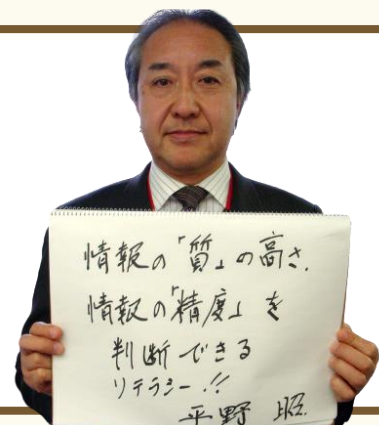 情報の「質」の高さ.
情報の「精度」を
判断できる
リテラシー!!
平野 昭